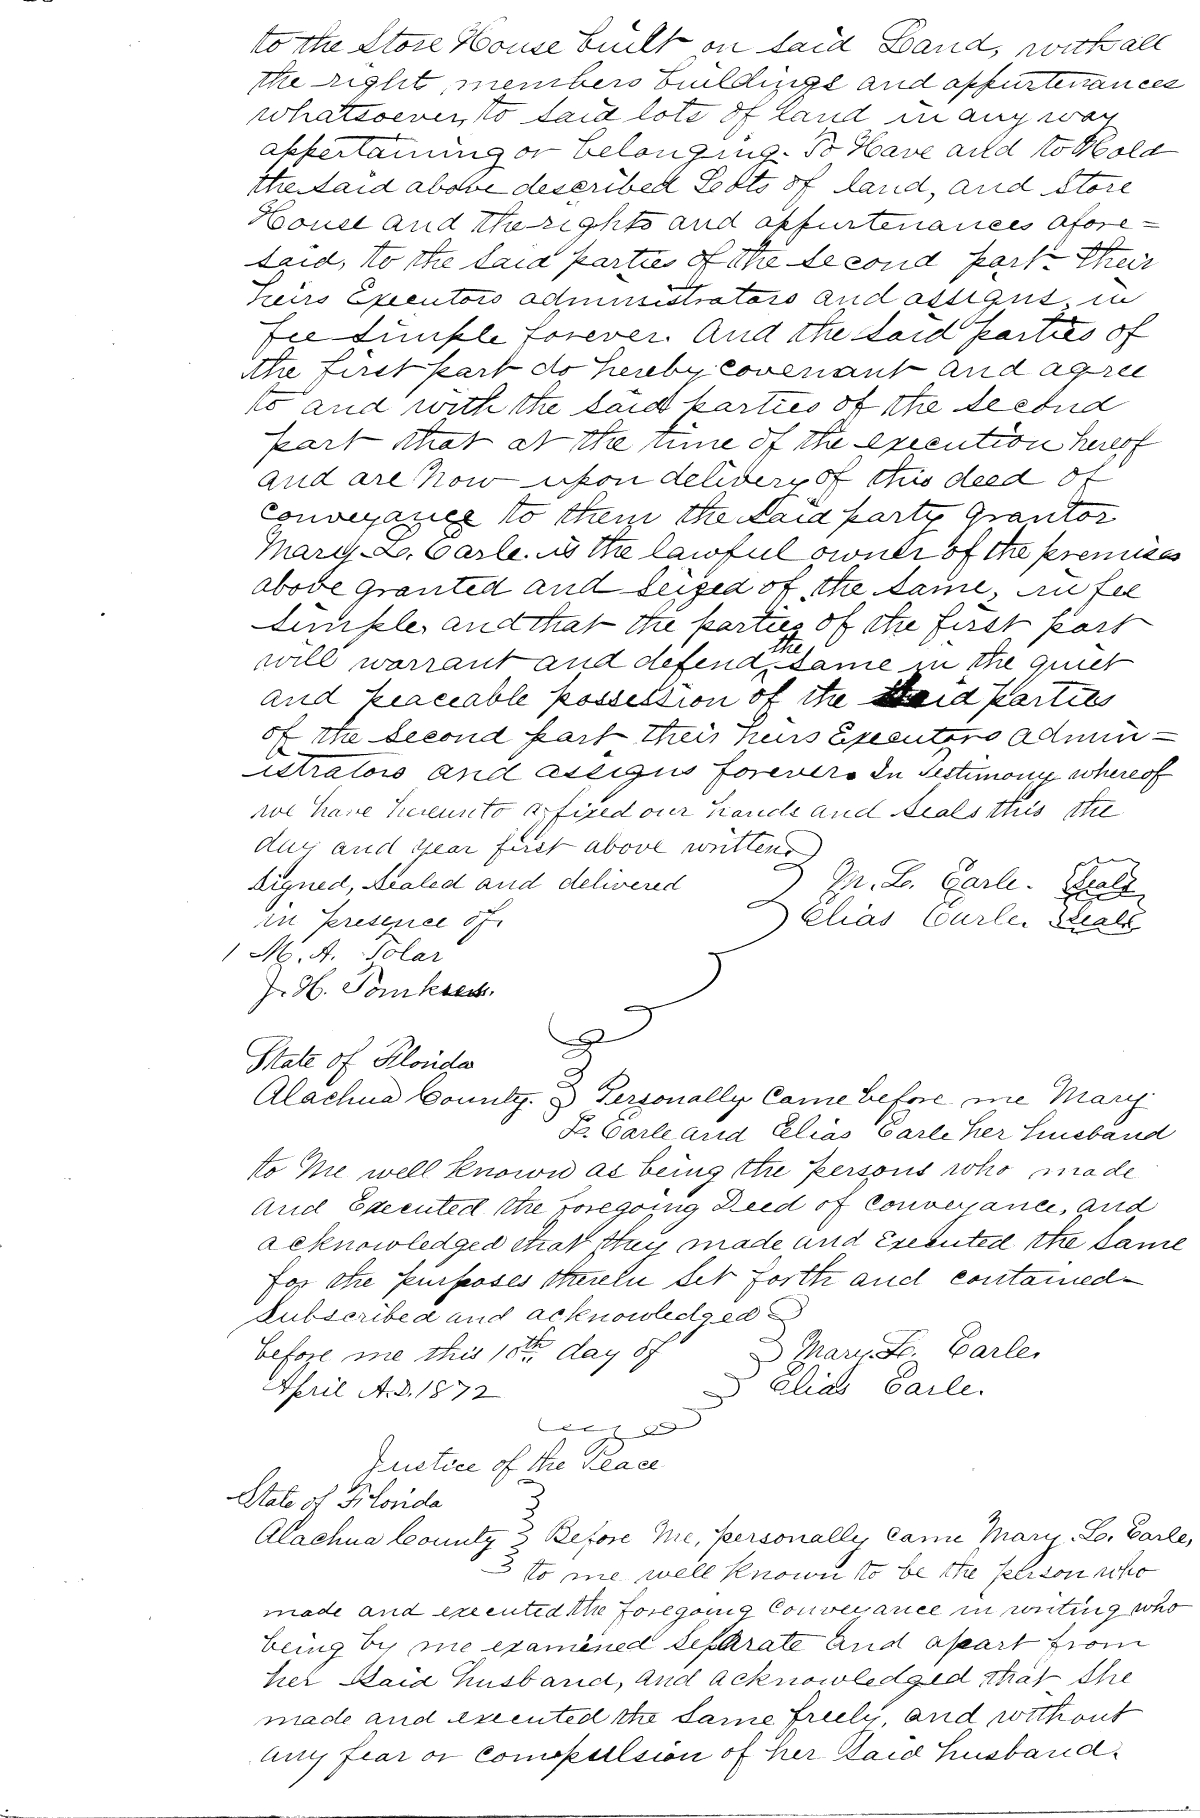 to the Store House built on said Land, with all
the right, members buildings and appurtenances
whatsoever, to said lots of land in any way
appertaining or belonging. To Have and to Hold
the said above described Lots of land, and Store
House and the rights and appurtenances afore=
said, to the said parties of the second part their
heirs Executors administrators and assigns, in
fee simple forever. And the said parties of
the first part do hereby covenant and agree
to and with the said parties of the second
part that at the time of the execution hereof
and are now upon delivery of this deed of
conveyance to them the said party grantor
Mary L. Earle. is the lawful owner of the premises
above granted and seized of the same, in fee
simple, and that the parties of the first part
will warrant and defend the same in the quiet
and peaceable possession of the said parties
of the second part their heirs Executors admin=
istrators and assigns forever. In Testimony whereof
we have hereunto affixed our hands and seals this the
day and year first above written.
Signed, sealed and delivered M. L. Earle. Seal
in presence of. Elias Earle. Seal
M. A. Tolar
J. H.
State of Florida
Alachua County. Personally came before me Mary
L. Earle and Elias Earle her husband
to me well known as being the persons who made
and Executed the foregoing Deed of Conveyance, and
acknowledged that they made and Executed the same
for the purposes therein set forth and contained
Subscribed and acknowledged
before me this 10th day of Mary L. Earle.
April A.D. 1872 Elias Earle.
Justice of the Peace
State of Florida
Alachua County Before me, personally came Mary L. Earle,
to me well known to be the person who
made and executed the foregoing conveyance in writing who
being by me examined separate and apart from
her said husband, and acknowledged that she
made and executed the same freely, and without
any fear or compulsion of her said husband.